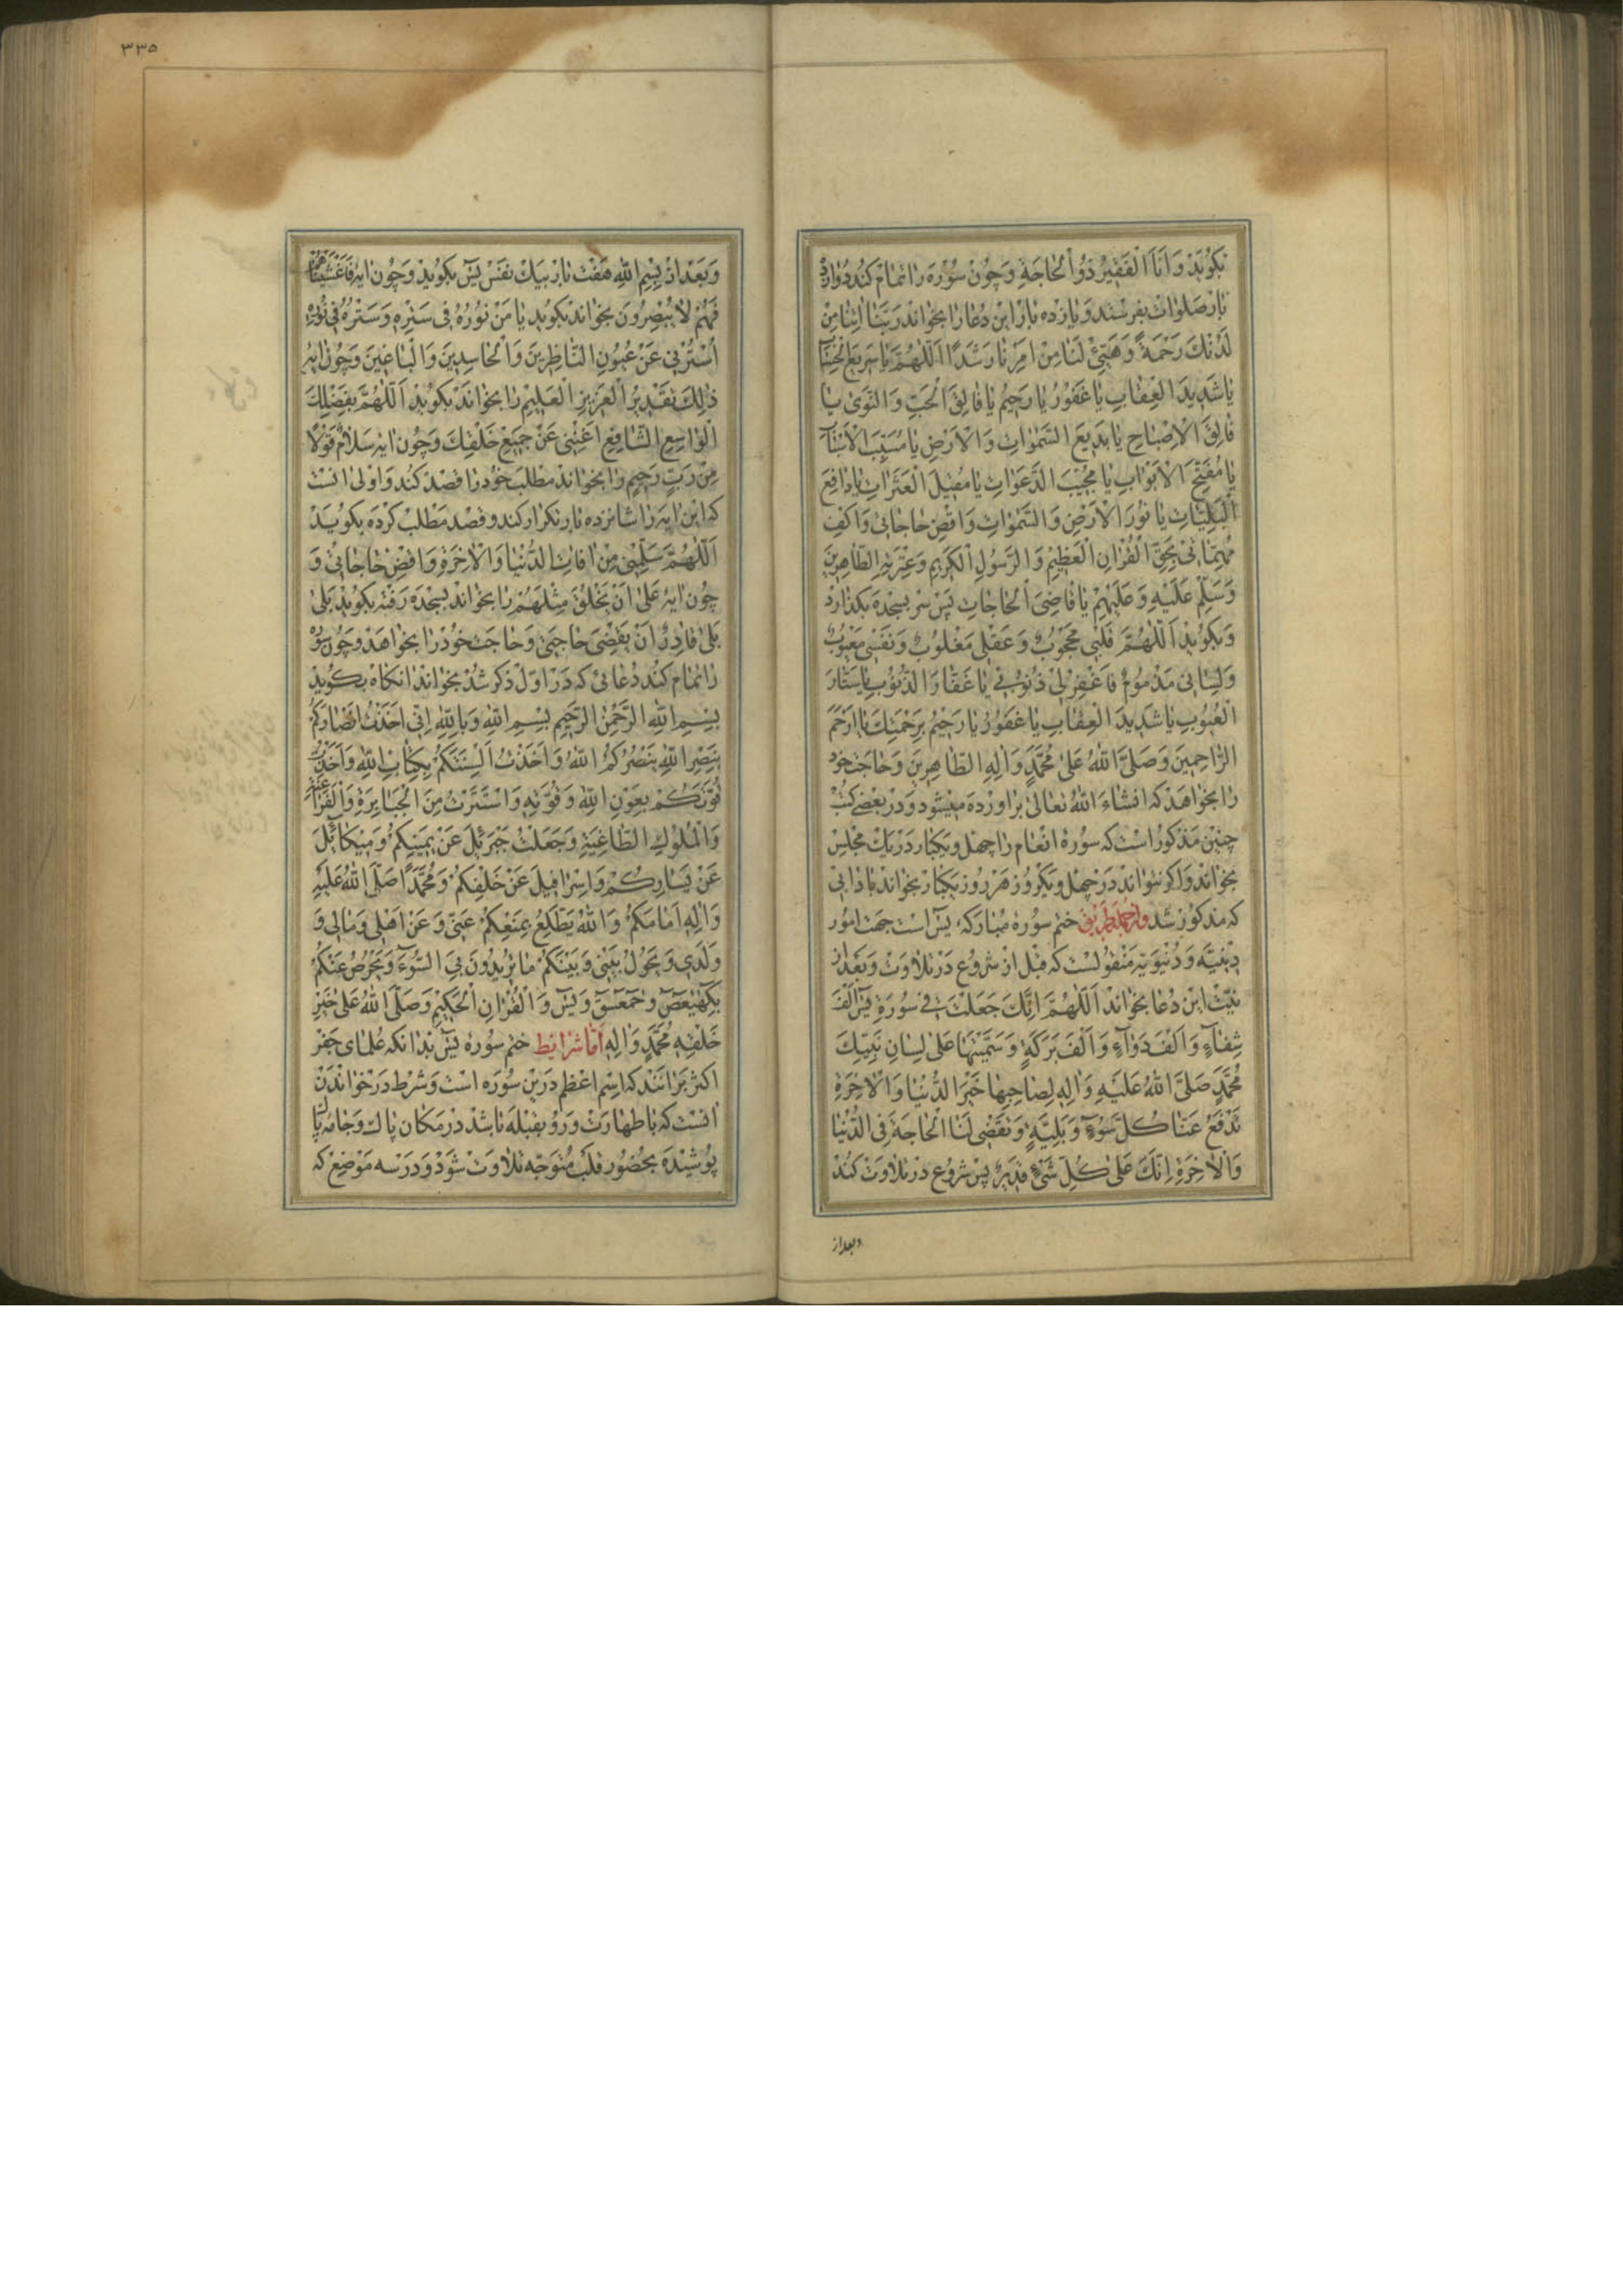 بگوید وَاَنَا الْفَقیرُ ذُو الْحاجَةِ وچون سوره را تمام کند دوازده
بار صلوات بفرستد ویازده بار این دعا را بخواند رَبَّنا اتِنا مِنْ
لَدُنْكَ رَحْمَةً وَهَیِّئْ لَنا مِنْ اَمْرِنا رَشَدًا اَللّهُمَّ یا سَریعَ الْحِسابِ
یا شَدیدَ الْعِقابِ یا غَفُورُ یا رَحیمُ یا فالِقَ الْحَبِّ وَالنَّوی یا
فالِقَ الْاِصْباحِ یا بَدیعَ السَّمواتِ وَالْاَرْضِ یا مُسَبِّبَ الْاَسْبابِ
یا مُفَتِّحَ الْاَبْوابِ یا مُجیبَ الدَّعَواتِ یا مُقیلَ الْعَثَراتِ یا دافِعَ
الْبَلِیّاتِ یا نُورَ الْاَرْضِ وَالسَّمواتِ وَاقْضِ حاجاتی وَاکْفِ
مُهِمّاتی بِحَقِّ الْقُرْانِ الْعَظیمِ وَالرَّسُولِ الْکَریمِ وَعِتْرَتِهِ الطّاهِرینَ
وَسَلِّمْ عَلَیْهِ وَعَلَیْهِمْ یا قاضِیَ الْحاجاتِ پس سر بسجده بگذارد
وبگوید اَللّهُمَّ قَلْبی مَحْجُوبٌ وَعَقْلی مَغْلُوبٌ وَنَفْسی مَعْیُوبٌ
وَلِسانی مَذْمُومٌ فَاغْفِرْ لی ذُنُوبی یا غَفّارَ الذُّنُوبِ یا سَتّارَ
الْعُیُوبِ یا شَدیدَ الْعِقابِ یا غَفُورُ یا رَحیمُ بِرَحْمَتِكَ یا اَرْحَمَ
الرّاحِمینَ وَصَلَّی اللهُ عَلی مُحَمَّدٍ وَالِهِ الطّاهِرینَ وحاجت خود
را بخواهد که انشاء الله تعالی براورده میشود ودر بعضی کتب
چنین مذکور است که سوره انعام را چهل ویکبار در یك مجلس
بخواند واگر نتواند در چهل ویکروز هر روز یکبار بخواند باداب
که مذکور شد وازجمله طریق ختم سوره مبارکه یس است جهت امور
دینیّه ودنیویّه منقولست که قبل از شروع در تلاوت وبعد از
نیّت این دعا بخواند اَللّهُمَّ اِنَّكَ جَعَلْتَ فی سُورَةِ یس اَلْفَ
شِفاءٍ وَاَلْفَ دَواءٍ وَاَلْفَ بَرَکَةٍ وَسَمَّیْتَها عَلی لِسانِ نَبِیِّكَ
مُحَمَّدٍ صَلَّی اللهُ عَلَیْهِ وَالِهِ لِصاحِبِها خَیْرَ الدُّنْیا وَالْاخِرَةِ
تَدْفَعُ عَنّا کُلَّ سُوءٍ وَبَلِیَّةٍ وَتَقْضی لَنَا الْحاجَةَ فِی الدُّنْیا
وَالْاخِرَةِ اِنَّكَ عَلی کُلِّ شَیْءٍ قَدیرٌ پس شروع در تلاوت کند
وبعد از
٣٣٥
وبعد از بسم الله هفت بار بیك نفس یس بگوید وچون ایه فَاَغْشَیْناهُمْ
فَهُمْ لا یُبْصِرُونَ بخواند بگوید یا مَنْ نُورُهُ فی سِتْرِهِ وَسَتْرُهُ فی نُورِهِ
اُسْتُرْنی عَنْ عُیُونِ النّاظِرینَ وَالْحاسِدینَ وَالْباغینَ وچون ایه
ذلِكَ تَقْدیرُ الْعَزیزِ الْعَلیمِ را بخواند بگوید اَللّهُمَّ بِفَضْلِكَ
الْواسِعِ الشّافِعِ اَغْنِنی عَنْ جَمیعِ خَلْقِكَ وچون ایه سَلامٌ قَوْلًا
مِنْ رَبٍّ رَحیمٍ را بخواند مطلب خود را قصد کند واولی انست
که این ایه را شانزده بار تکرار کند وقصد مطلب کرده بگوید
اَللّهُمَّ سَلِّمْنی مِنْ افاتِ الدُّنْیا وَالْاخِرَةِ وَاقْضِ حاجاتی و
چون ایه عَلی اَنْ یَخْلُقَ مِثْلَهُمْ را بخواند بسجده رفته بگوید بَلی
بَلی قادِرٌ اَنْ یَقْضِیَ حاجَتی وحاجت خود را بخواهد وچون سوره
را تمام کند دعائی که در اوّل ذکر شد بخواند انگاه بگوید
بِسْمِ اللهِ الرَّحْمنِ الرَّحیمِ بِسْمِ اللهِ وَبِاللهِ اِنّی اَخَذْتُ اَبْصارَکُمْ
بِنَصْرِ اللهِ یَنْصُرُکُمُ اللهُ وَاَخَذْتُ اَلْسِنَتَکُمْ بِکِتابِ اللهِ وَاَخَذْتُ
قُوَّتَکُمْ بِعَوْنِ اللهِ وَقُوَّتِهِ وَاسْتَتَرْتُ مِنَ الْجَبابِرَةِ وَالْفَراعِنَةِ
وَالْمُلُوكِ الطّاغِیَةِ وَجَعَلْتُ جَبْرَئیلَ عَنْ یَمینِکُمْ وَمیکائیلَ
عَنْ یَسارِکُمْ وَاِسْرافیلَ عَنْ خَلْفِکُمْ وَمُحَمَّدًا صَلَّی اللهُ عَلَیْهِ
وَالِهِ اَمامَکُمْ وَاللهُ یَطَّلِعُ بِمَنْعِکُمْ عَنّی وَعَنْ اَهْلی وَمالی وَ
وَلَدی وَیَحُولُ بَیْنی وَبَیْنَکُمْ ما تُریدُونَ بِیَ السُّوءَ وَیَحْرُصُ عَنْکُمْ
بِکهیعص وحمعسق وَیس وَالْقُرْانِ الْحَکیمِ وَصَلَّی اللهُ عَلی خَیْرِ
خَلْقِهِ مُحَمَّدٍ وَالِهِ امّا شرایط ختم سوره یس بدانکه علمای جفر
اکثر برانند که اسم اعظم درین سوره است وشرط در خواندن
انست که با طهارت ورو بقبله باشد در مکان پاك وجامه پاك
پوشیده بحضور قلب متوجّه تلاوت شود ودر سه موضع که